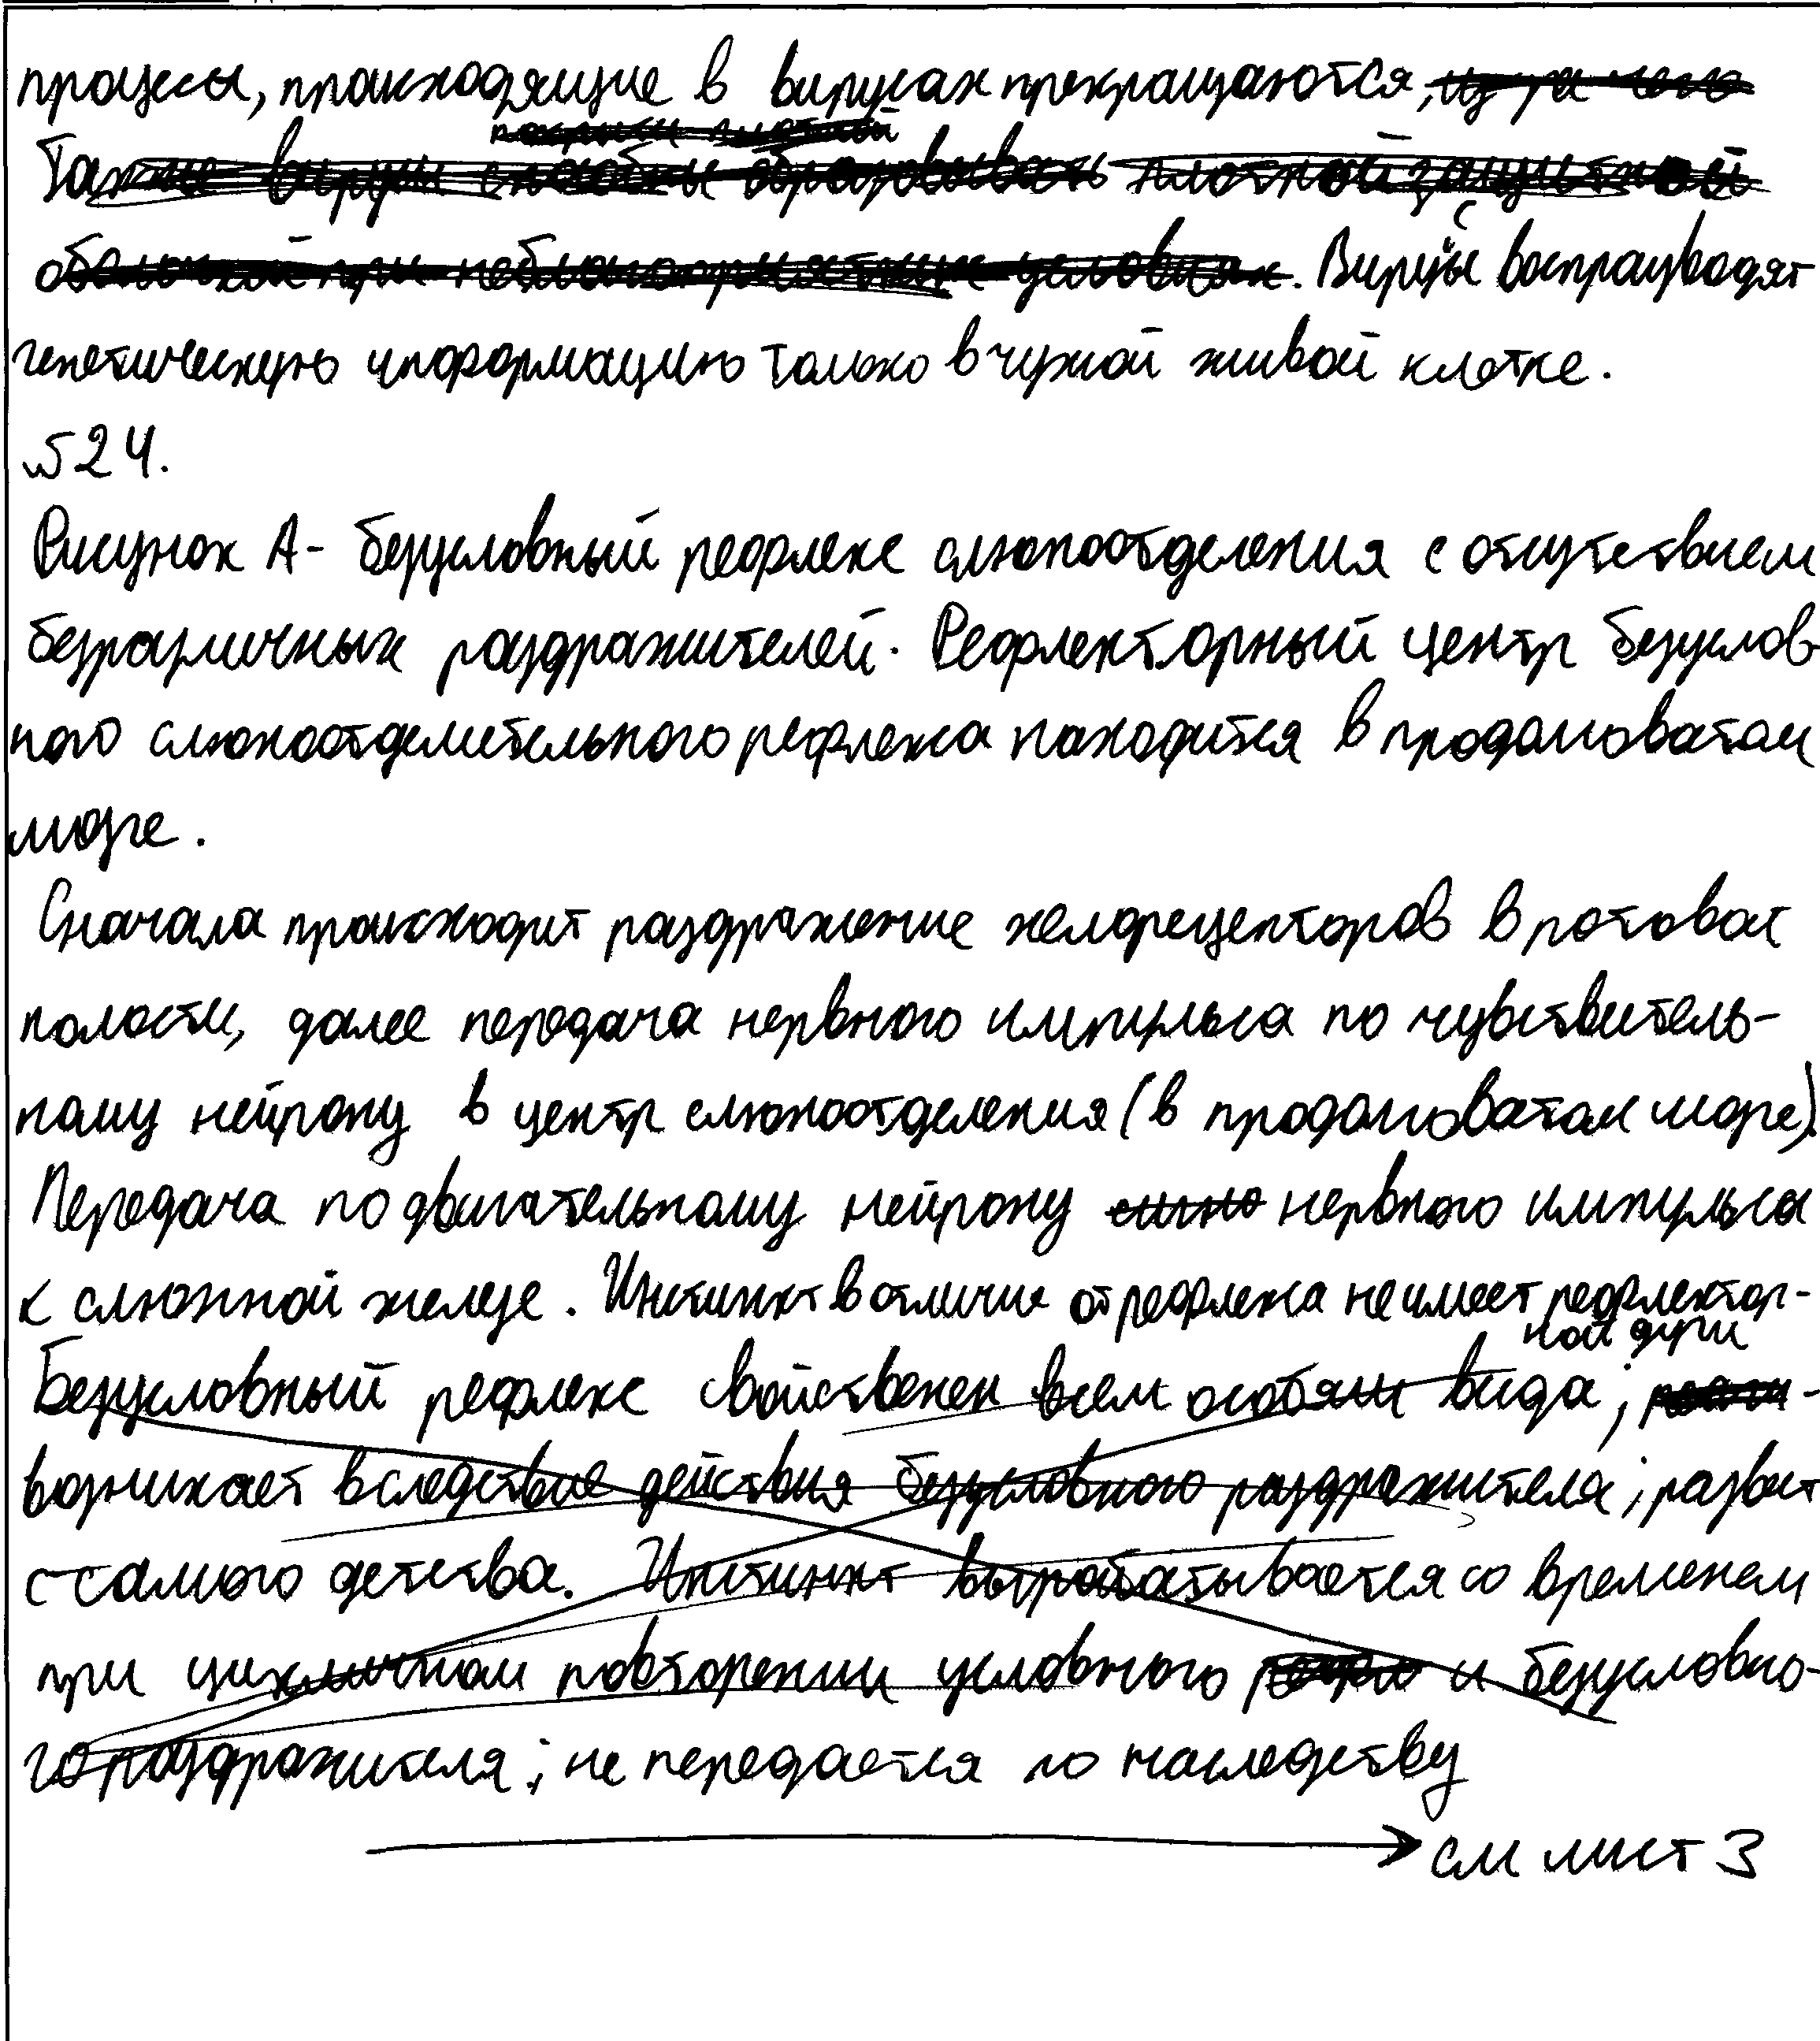 процессы, происходящие в вирусах прекращаются, из за чего
покрыты плотной
Также вирусы способны образовывать плотной защитной
оболочкой при неблагоприятных условиях. Вирусы воспроизводят
генетическую информацию только в чужой живой клетке.
№24.
Рисунок А- безусловный рефлекс слюноотделения с отсутствием
безразличных раздражителей. Рефлекторный центр безуслов-
ного слюноотделительного рефлекса находится в продолговатом
мозге.
Сначала происходит раздражение хеморецепторов в ротовой
полости, далее передача нервного импульса по чувствитель-
ному нейрону в центр слюноотделения (в продолговатом мозге).
Передача по двигательному нейрону нервного импульса
к слюнной железе. Инстинкт в отличии от рефлекса не имеет рефлектор-
ной дуги
Безусловный рефлекс свойственен всем особям вида;
возникает вследствие действия безусловного раздражителя; развит
с самого детства. Инстинкт вырабатывается со временем
при цикличном повторении условного и безусловно-
го раздражителя; не передается по наследству
см лист 3